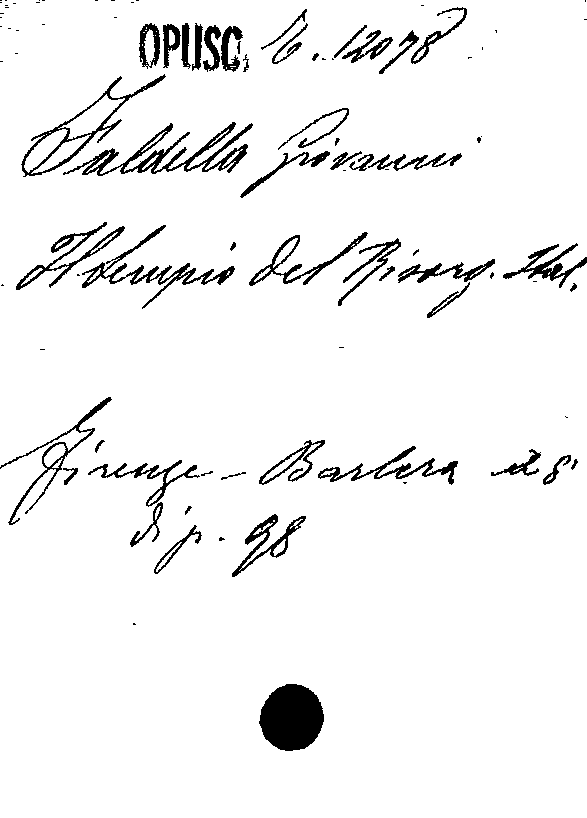 OPUSC. E. 12078
Faldella Giovanni
Il tempio del Risorg. Ital.
Firenze - Barbera in 8°
di p. 98